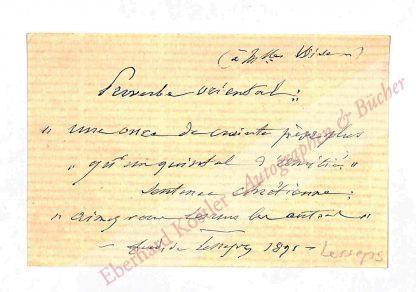 (à Mlles
Proverbe oriental:
" une once de crainte pèse plus
" qu'un quintal d'amitié."
Sentence chrétienne:
" aimez vous les uns les autres "
de Lesseps 1891 - Lesseps
Eberhard Köstler Autographen & Bücher